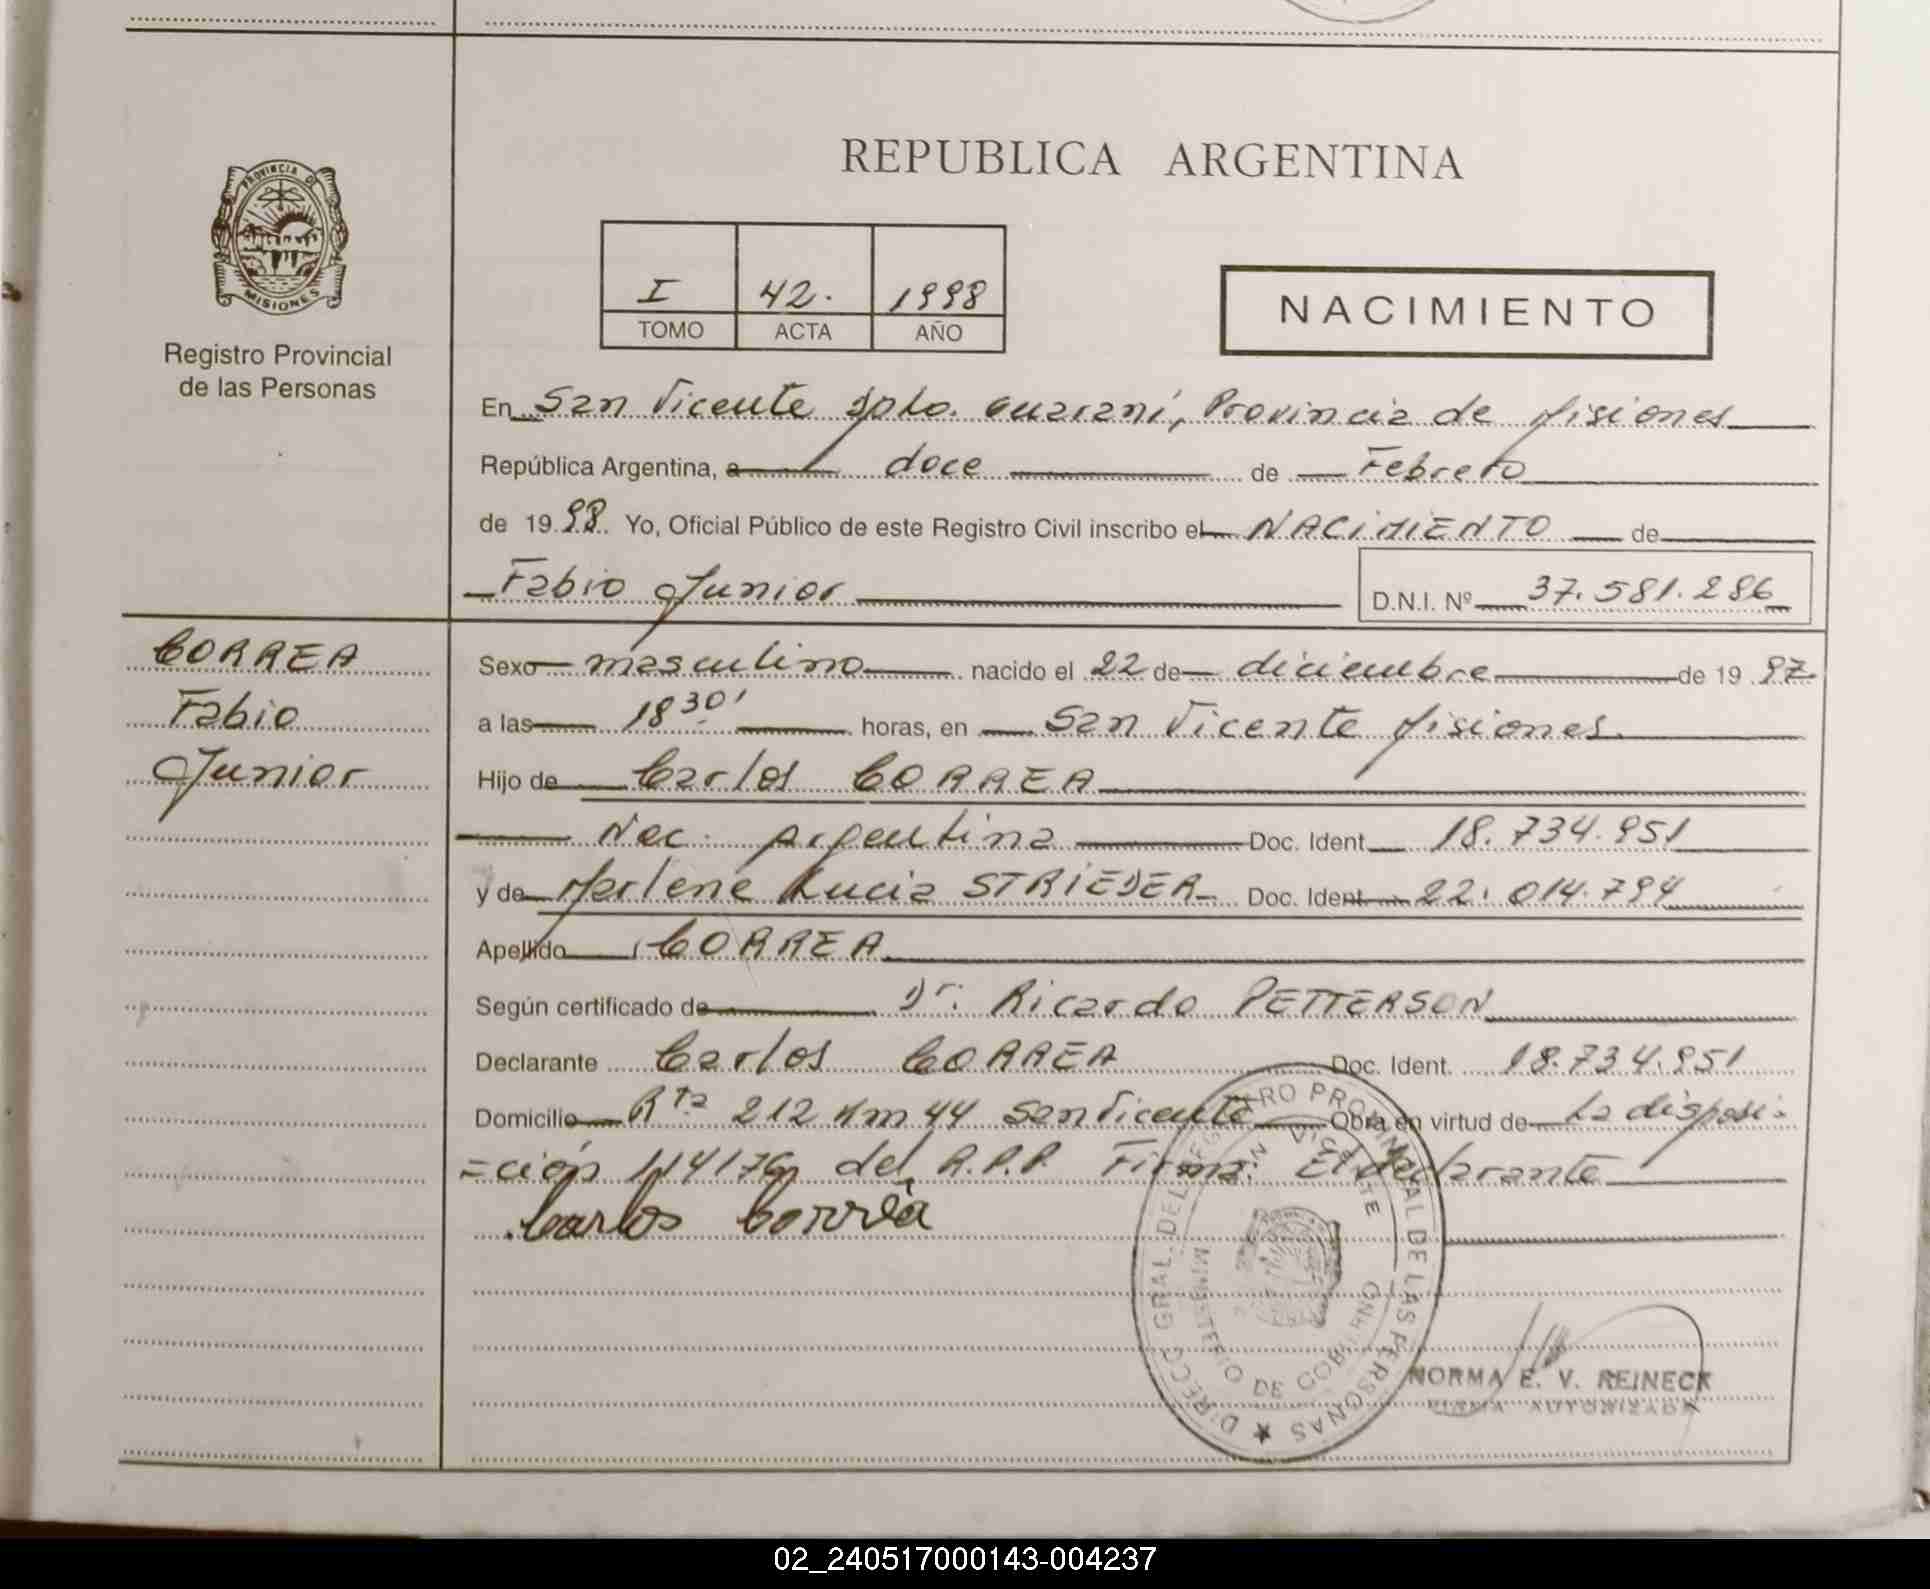 REPUBLICA ARGENTINA
PROVINCIA DE
MISIONES
Registro Provincial
de las Personas
I 42. 1998
TOMO ACTA AÑO
NACIMIENTO
En San Vicente Dpto. Guaraní, Provincia de Misiones
República Argentina, a doce de Febrero
de 1998. Yo, Oficial Público de este Registro Civil inscribo el NACIMIENTO de
Fabio Junior
D.N.I. Nº 37.581.286
CORREA
Fabio
Junior
Sexo masculino nacido el 22 de diciembre de 1997.
a las 18 30' horas, en San Vicente Misiones.
Hijo de Carlos CORREA
Nac. Argentina Doc. Ident. 18.734.951
y de Marlene Lucia STRIEDER Doc. Ident. 22.014.794
Apellido CORREA
Según certificado de Dr. Ricardo PETTERSON
Declarante Carlos CORREA Doc. Ident. 18.734.951
Domicilio Rta 212 Km 44 San Vicente Obra en virtud de La disposi-
=ción 114176 del R.P.P. Firma: El declarante
Carlos Corrêa
DIRECC. GRAL. DEL REGISTRO PROVINCIAL DE LAS PERSONAS
SAN VICENTE
MINISTERIO DE GOBIERNO
NORMA E. V. REINECK
FIRMA AUTORIZADA
02_240517000143-004237